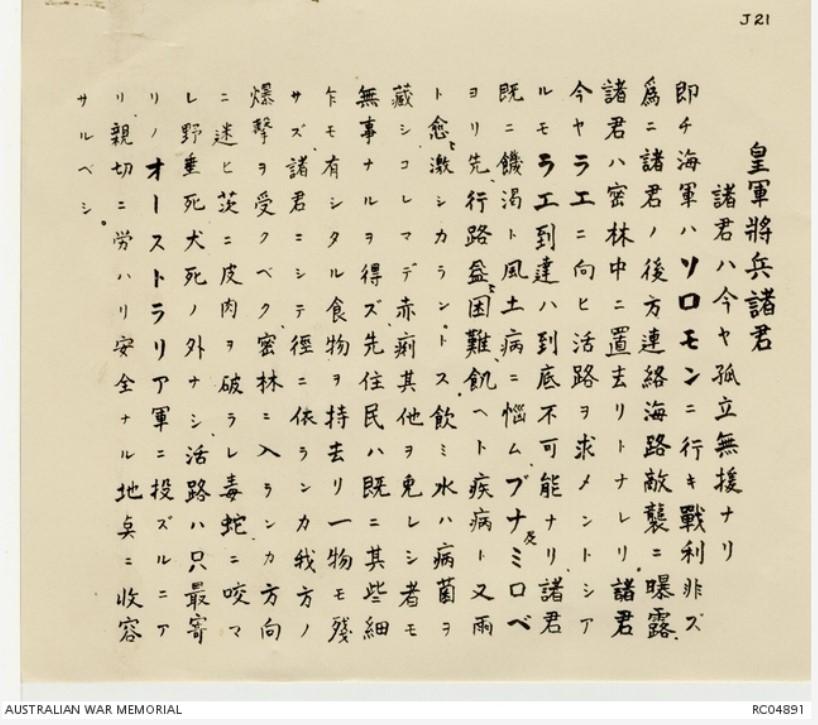 J21
皇軍將兵諸君
諸君ハ今ヤ孤立無援ナリ
即チ海軍ハソロモンニ行キ戰利非ズ
爲ニ諸君ノ後方連絡海路敵襲ニ曝露、
諸君ハ密林中ニ置去リトナレリ、諸君
今ヤラエニ向ヒ活路ヲ求メントシア
ルモラエ到達ハ到底不可能ナリ、諸君
既ニ饑渴ト風土病ニ悩ム、ブナ及ミロベ
ヨリ先、行路益〻困難、飢ヘト疾病ト又雨
ト愈〻激シカラントス、飲ミ水ハ病菌ヲ
藏シコレマデ赤痢其他ヲ免レシ者モ
無事ナルヲ得ズ先住民ハ既ニ其些細
乍モ有シタル食物ヲ持去リ一物モ殘
サズ、諸君ニシテ徑ニ依ランカ我方ノ
爆擊ヲ受クベク、密林ニ入ランカ方向
ニ迷ヒ茨ニ皮肉ヲ破ラレ毒蛇ニ咬マ
レ野垂死犬死ノ外ナシ、活路ハ只最寄
リノオーストラリア軍ニ投ズルニア
リ親切ニ労ハリ安全ナル地奌ニ收容
サルベシ。
AUSTRALIAN WAR MEMORIAL
RC04891